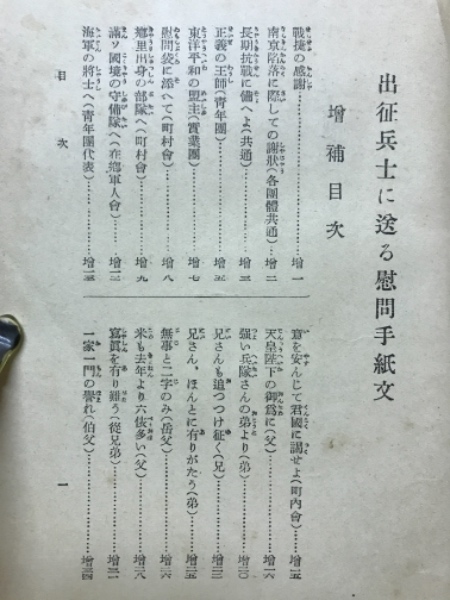 出征兵士に送る慰問手紙文
增補目次
戰捷の感謝…………增一
南京陷落に際しての謝狀(各團體共通)…增二
長期抗戰に備へよ(共通)…………增三
正義の王師(靑年團)…………增五
東洋平和の盟主(實業團)…………增七
慰問袋に添へて(町村會)…………增八
鄕里出身の部隊へ(町村會)…………增九
滿ソ國境の守備隊へ(在鄕軍人會)……增一二
海軍の將士へ(靑年團代表)…………增一三
意を安んじて君國に謁せよ(町內會)……增一五
天皇陛下の御爲に(父)…………增一六
强い兵隊さんの弟より(弟)…………增二〇
兄さんも追つつけ征く(兄)…………增二三
兄さん、ほんとに有りがたう(弟)……增二五
無事と二字のみ(岳父)…………增二六
米も去年より六俵多い(父)…………增二八
寫眞を有り難う(從兄弟)…………增三一
一家一門の譽れ(伯父)…………增三四
目次
一